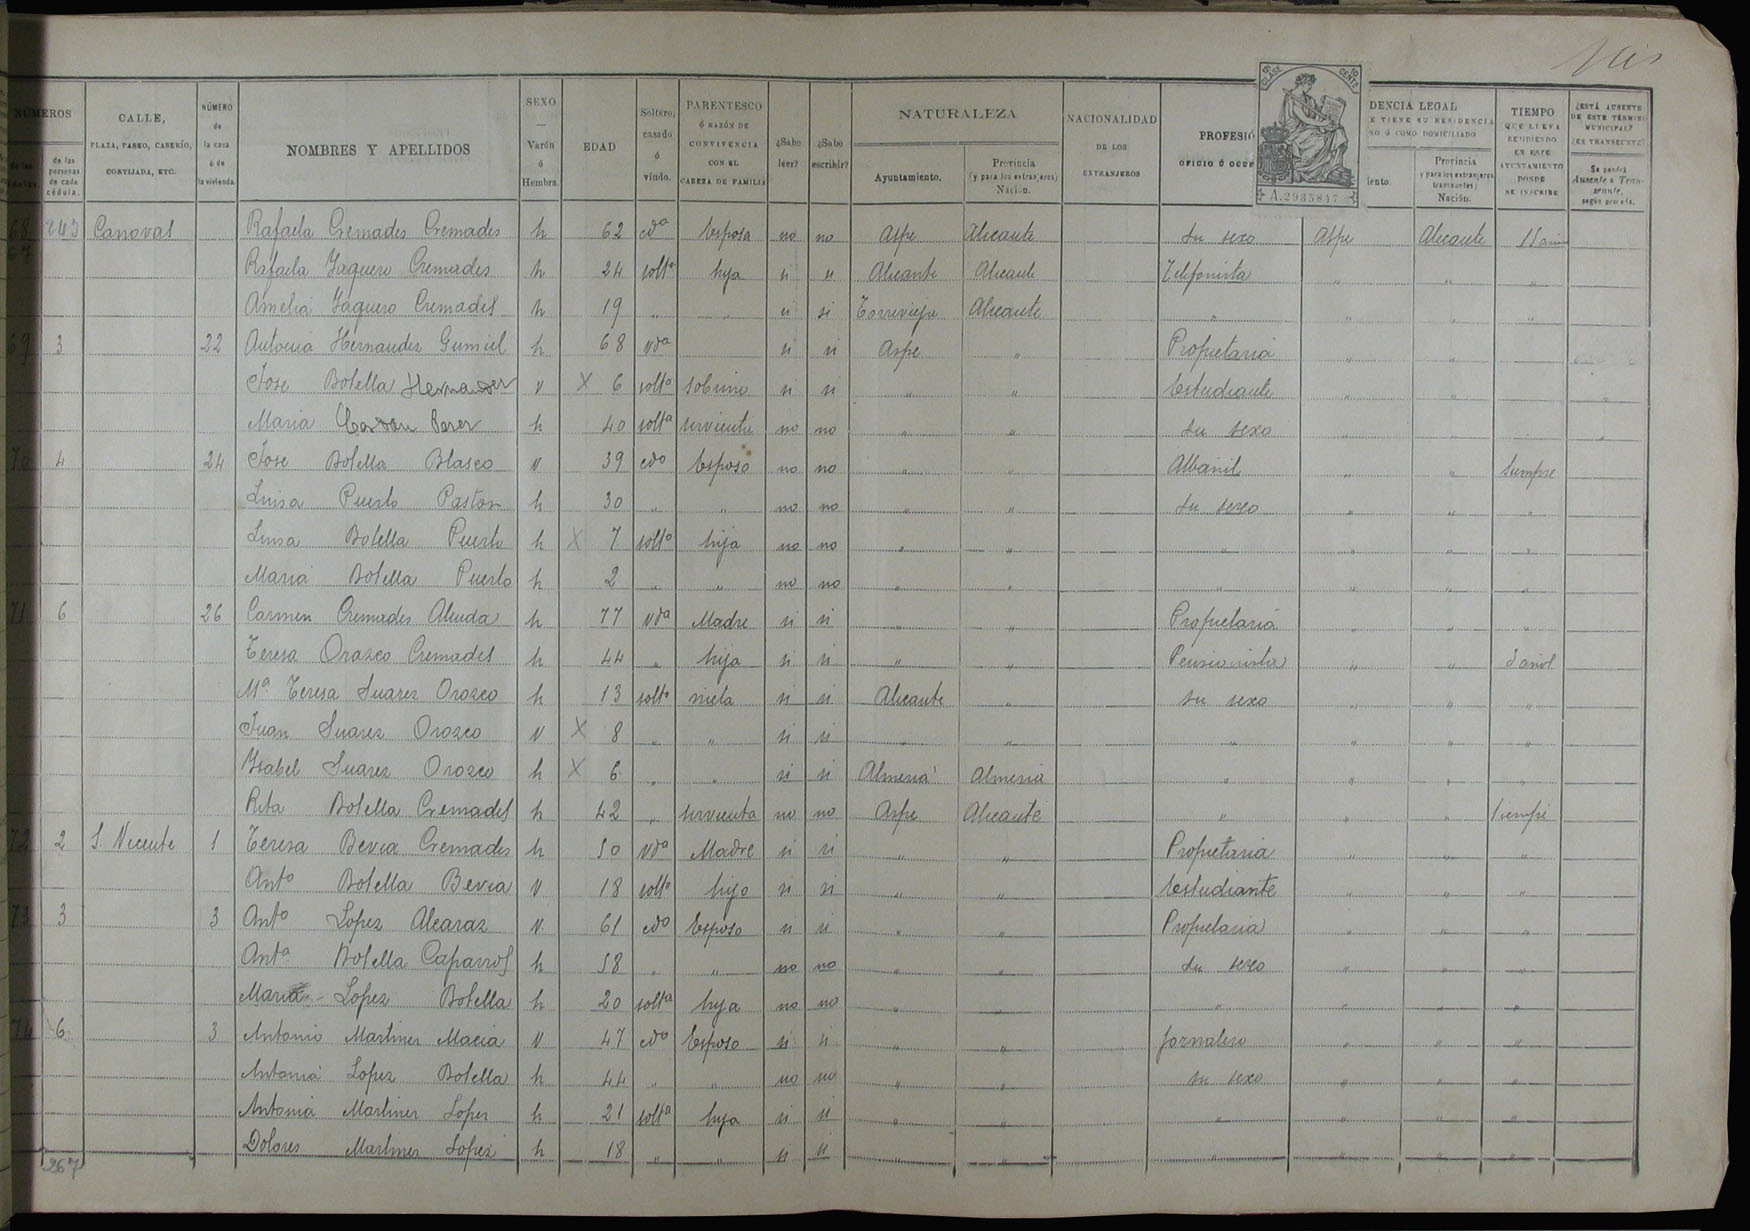 seis
NÚMEROS
de las personas de cada cédula.
CALLE, PLAZA, PASEO, CASERÍO, CORTIJADA, ETC.
NÚMERO de la casa ó de la vivienda.
NOMBRES Y APELLIDOS
SEXO — Varón ó Hembra.
EDAD
Soltero, casado ó viudo.
PARENTESCO Ó RAZÓN DE CONVIVENCIA CON EL CABEZA DE FAMILIA
¿Sabe leer?
¿Sabe escribir?
NATURALEZA
Ayuntamiento.
Provincia (y para los extranjeros) Nación.
NACIONALIDAD DE LOS EXTRANJEROS
PROFESIÓ
OFICIO Ó OCUP
8ª CLASE 10 CENTS
A.2935847
DENCIA LEGAL
E TIENE SU RESIDENCIA
NO Ó COMO DOMICILIADO
iento.
Provincia (y para los extranjeros transeuntes) Nación.
TIEMPO QUE LLEVA RESIDIENDO EN ESTE AYUNTAMIENTO DONDE SE INSCRIBE
¿ESTÁ AUSENTE DE ESTE TÉRMINO MUNICIPAL? ¿ES TRANSEUNTE? Se pondrá Ausente ó Transeunte, según proceda.
68 243 Canovas Rafaela Cremades Cremades h 62 cdª Esposa no no Aspe Alicante su sexo Aspe Alicante 11 años
Rafaela Yaguero Cremades h 24 soltª hija si si Alicante Alicante Telefonista " " "
Amelia Yaguero Cremades h 19 " " si si Torrevieja Alicante " " " "
69 3 22 Antonia Hernandez Gumiel h 68 vdª si si Aspe " Propietaria " "
Jose Botella Hernandez v X 6 soltº sobrino si si " " Estudiante "
Maria Perez h 40 soltª sirvienta no no " " su sexo " "
70 4 24 Jose Botella Blasco v 39 cdº Esposo no no " " Albañil " " Siempre
Luisa Puerto Pastor h 30 " " no no " " su sexo " " "
Luisa Botella Puerto h X 7 soltº hija no no " " " " " "
Maria Botella Puerto h 2 " " no no " " " " " "
71 6 26 Carmen Cremades Alenda h 77 vdª Madre si si " " Propietaria " " "
Teresa Orozco Cremades h 44 " hija si si " " Pensionista " " 3 años
Mª Teresa Suarez Orozco h 13 soltª nieta si si Alicante " su sexo " " "
Juan Suarez Orozco v X 8 " " si si " " " " " "
Ysabel Suarez Orozco h X 6 " " si si Almeria Almeria " " " "
Rita Botella Cremades h 42 " sirvienta no no Aspe Alicante " " " Siempre
72 2 S. Vicente 1 Teresa Bevia Cremades h 50 vdª Madre si si " " Propietaria " " "
Antº Botella Bevia v 18 soltº hijo si si " " Estudiante " " "
73 3 3 Antº Lopez Alcaraz v 61 cdº Esposo si si " " Propietaria " " "
Antª Botella Caparros h 58 " " no no " " su sexo " " "
Maria Lopez Botella h 20 soltª hija no no " " " " " "
74 6 3 Antonio Martinez Macia v 47 cdº Esposo si si " " Jornalero " " "
Antonia Lopez Botella h 44 " " no no " " su sexo " " "
Antonia Martinez Lopez h 21 soltª hija si si " " " " " "
Dolores Martinez Lopez h 18 " " si si " " " " " "
267